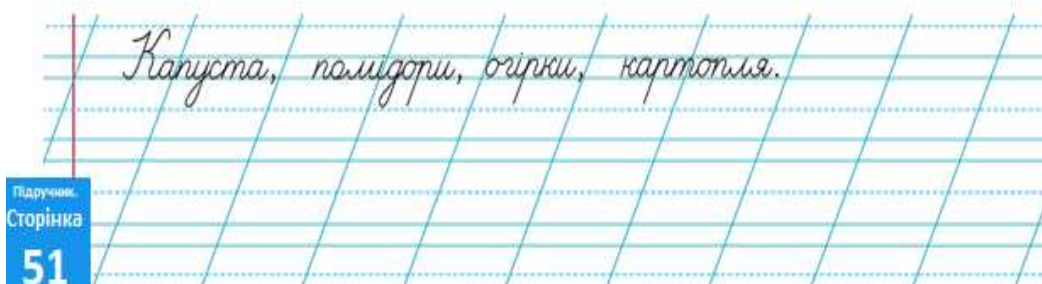 Капуста, помідори, огірки, картопля.
Підручник.
Сторінка
51